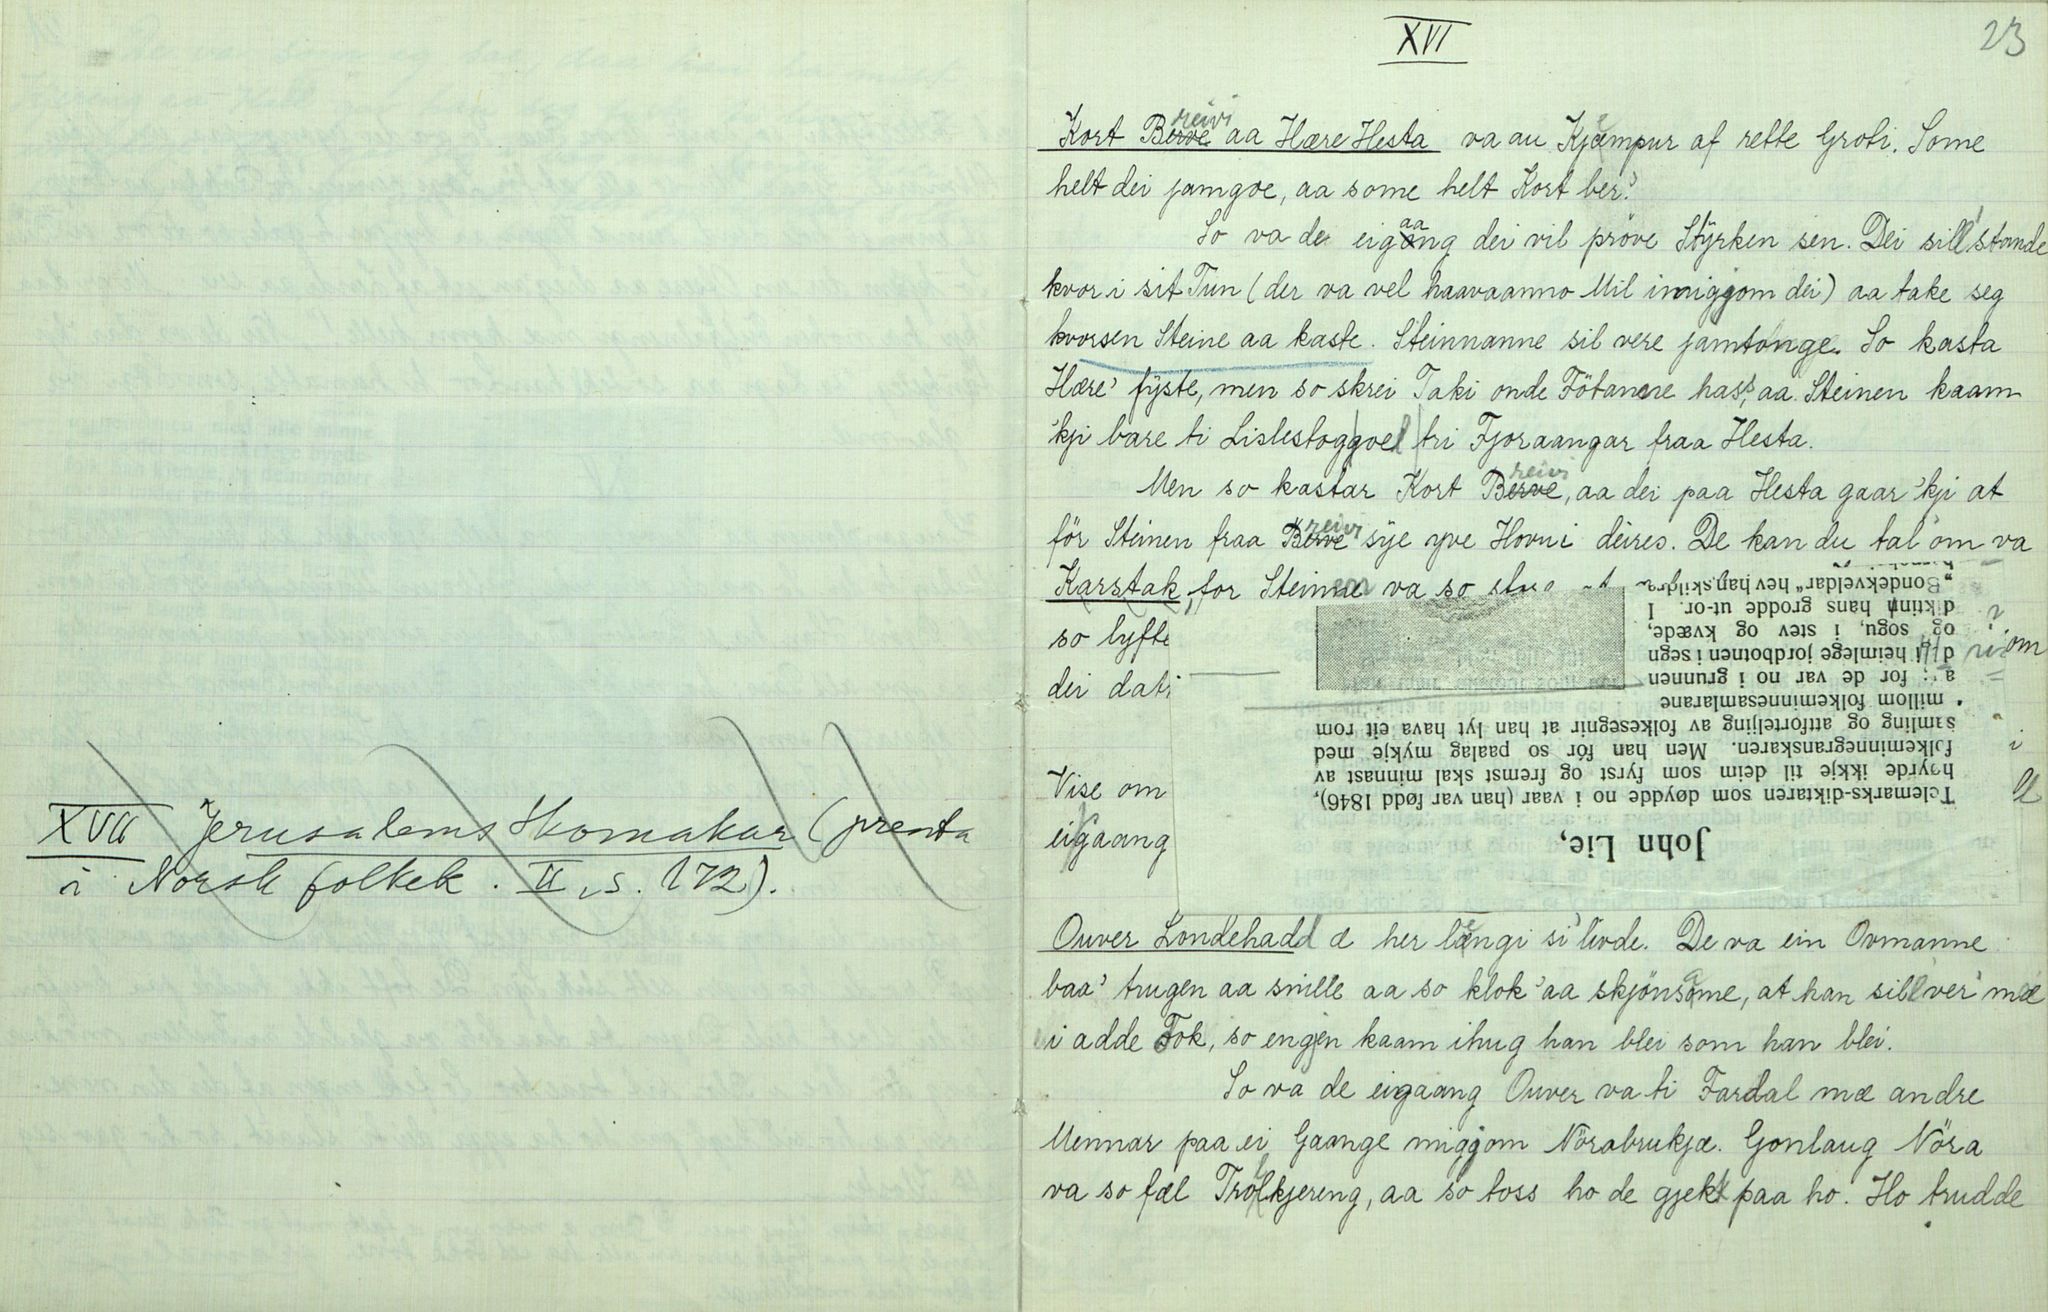 XVII Jerusalems Skomakar (prenta
i Norsk folkek. II, s. 172).
XVI
23
reivi
Kort Berve aa Hære Hesta va au Kjæmpur af rette Groti. Some
helt dei jamgoe, aa some helt Kort ber'.
aa
So va de eigang dei vil pröve Styrken sen. Dei sill' stande
kvor i sit Tun (der va vel haavaanno Mil imiggjom dei) aa take seg
kvorsen Steine aa kaste. Steinnanne sil vere jamtonge. So kasta
Hære' fyste, men so skrei Taki onde Fötanere hass, aa Steinen kaam
'kji bare ti Lislestoggoel tri Fjoraangar fraa Hesta.
reivi
Men so kastar Kort Berve, aa dei paa Hesta gaar 'kji at
reivi
för Steinen fraa Berve sye yve Hovu i deires. De kan du tal' om va
Karstak, for Steinen va so
so lyfte om
dei
Vise om i
eigaang
John Lie,
Telemarks-diktaren som døydde no i vaar (han var fødd 1846),
høyrde ikkje til deim som fyrst og fremst skal minnast av
folkeminnegranskaren. Men han fór so paalag mykje med
samling og attforteljing av folkesegnir at han lyt hava eit rom
millom folkeminnesamlarane
for de var no i grunnen
heimlege jordbotnen i segn
og sogu, i stev og kvæde,
diktinn hans grodde ut-or. I
„Bondekveldar“ hev han skildra
Ouver Londehadd æ her længi si' livde. De va ein Ovmanne
baa' trugen aa snille aa so klok' aa skjönsame, at han sill' ver' mæ
i adde Tok, so engjen kaam ihug han blei som han blei.
So va de eigaang Ouver va ti Fardal mæ andre
Mennar paa ei Gaange miggjom Nörabrukjæ. Gonlaug Nöra
va so fæl Trollkjereng, aa so toss ho de gjekk paa ho. Ho trudde